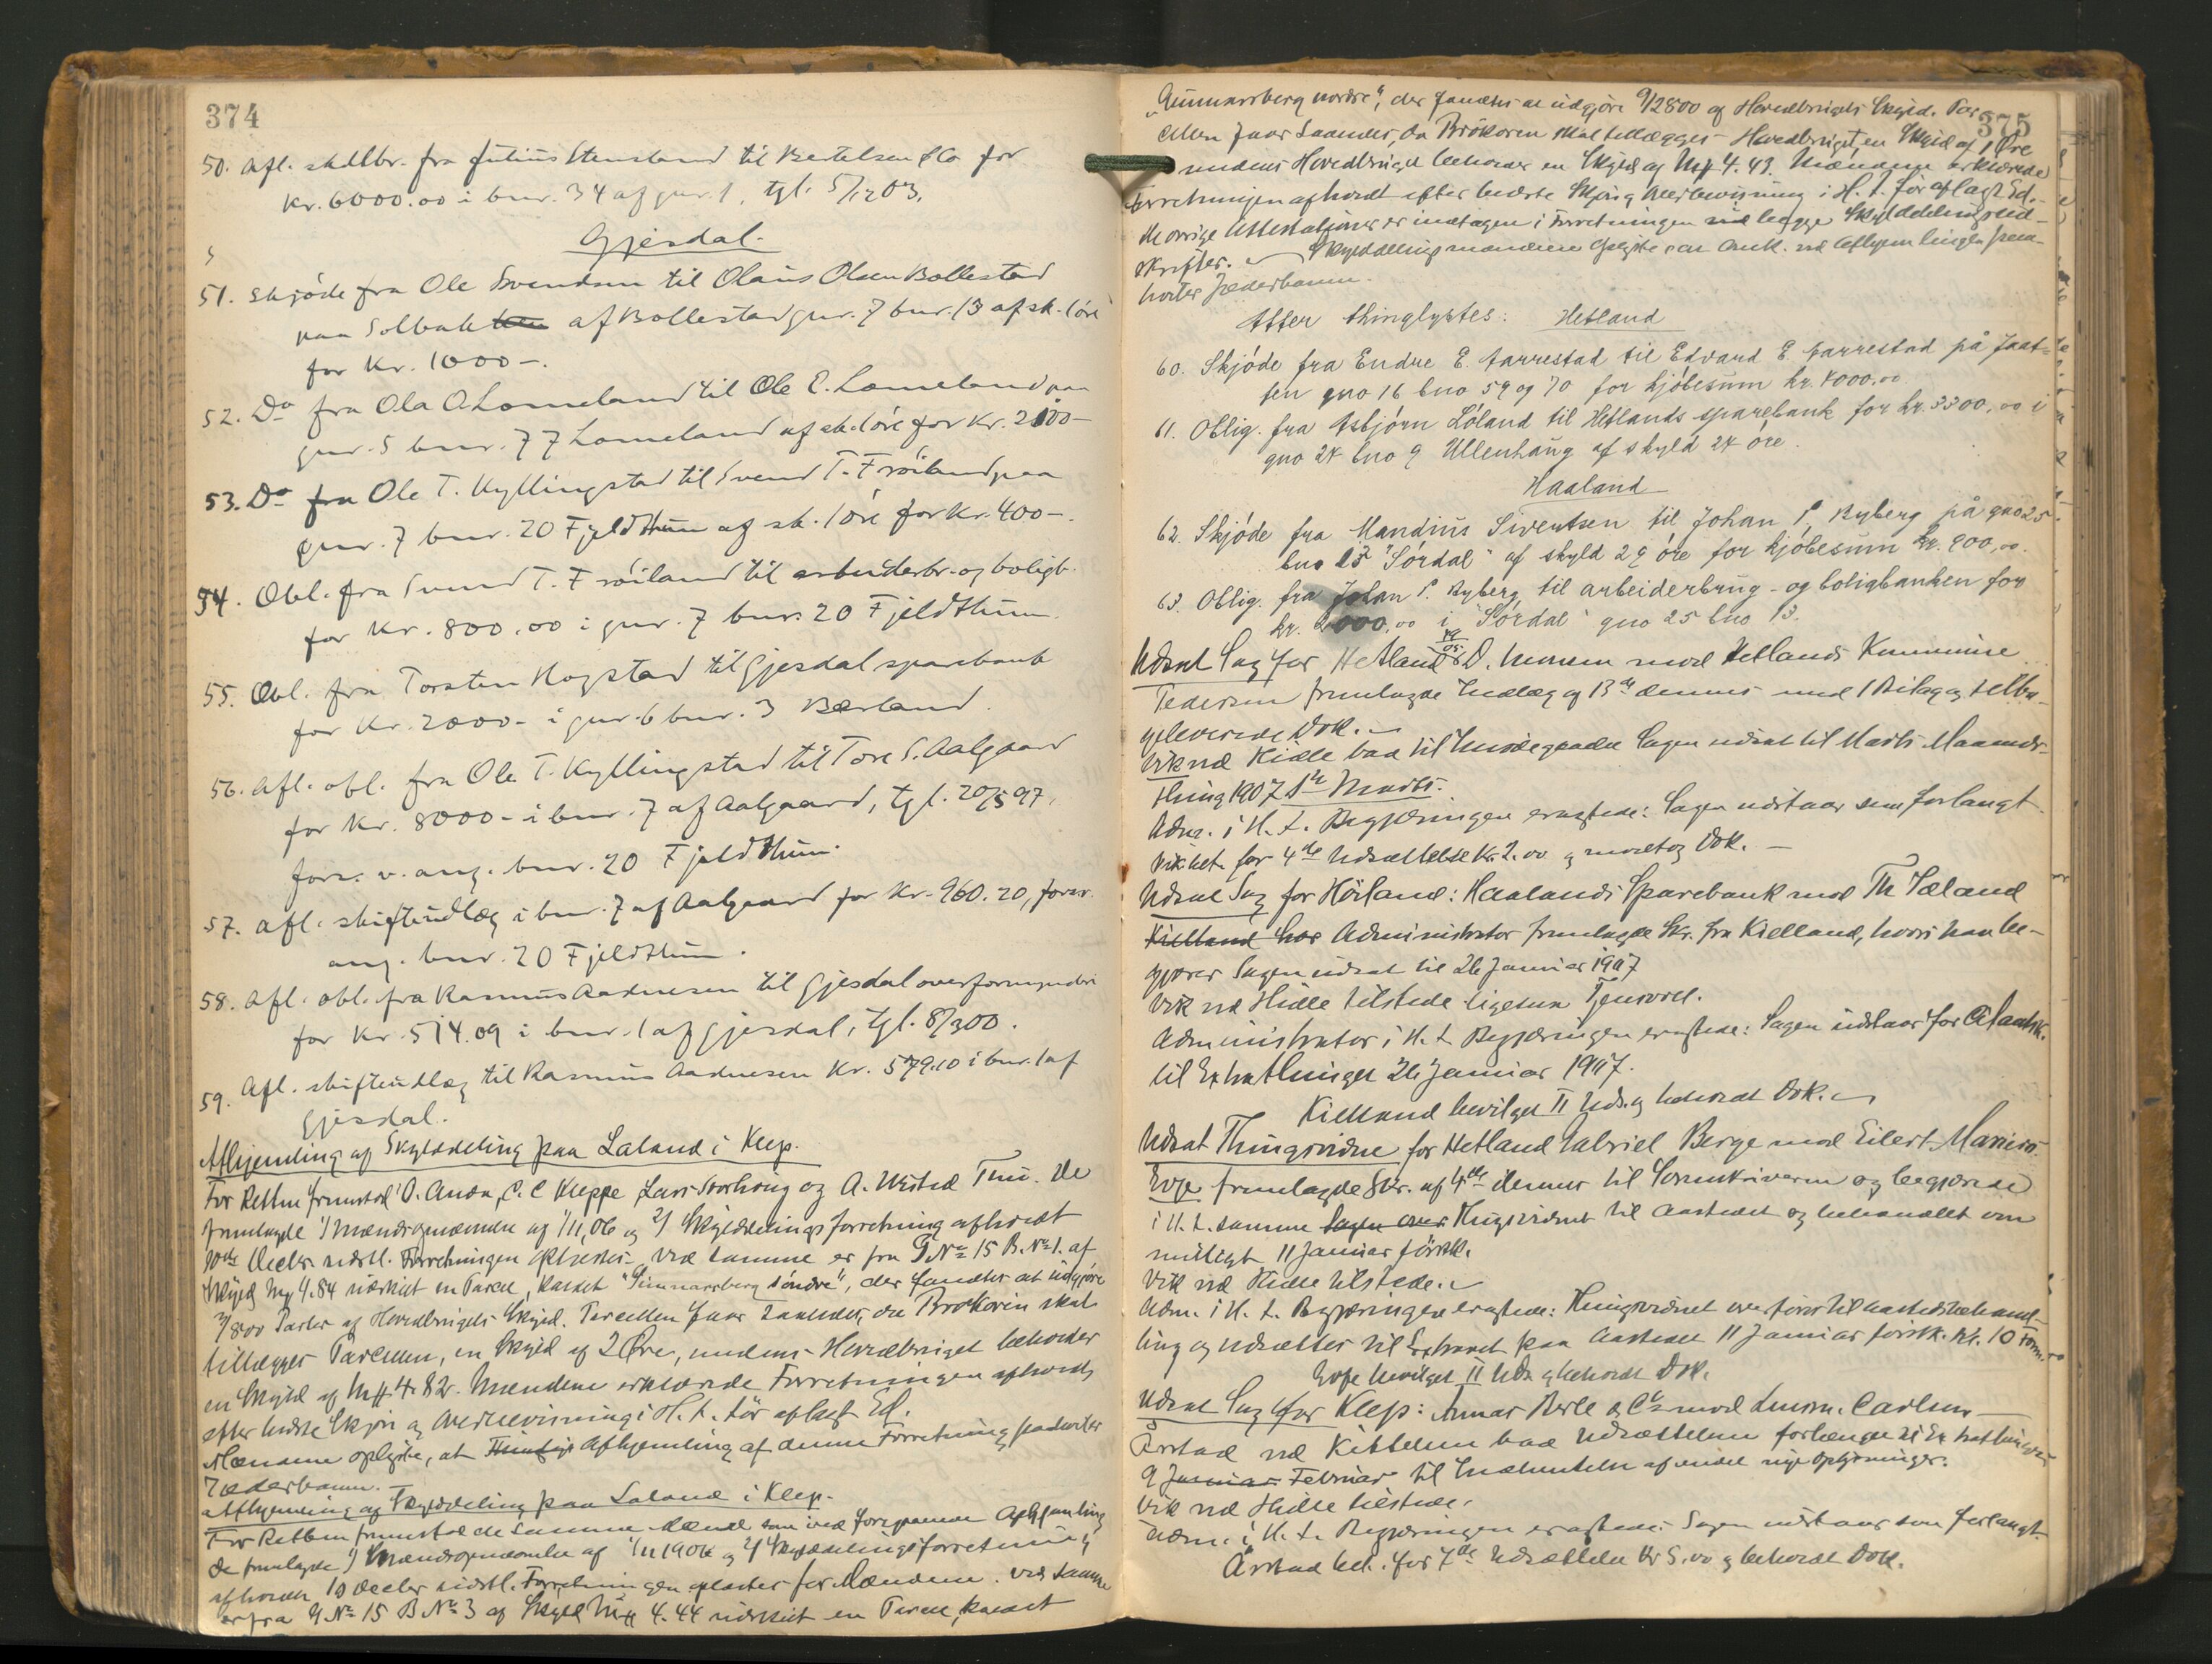 374
50. Afl. skdlbr. fra Julius Stensland til Bertelsen & Co for
Kr. 6000.00 i bnr. 34 af gnr. 1, tgl. 5/12 03.
Gjesdal.
51. Skjöde fra Ole Svendsen til Olaus Olsen Bollestad
paa Solbak af Bollestad gnr. 7 bnr. 13 af sk. 1 öre
for Kr. 1000-.
52. Do fra Ola O. Lomeland til Ole E. Lomeland paa
gnr. 5 bnr. 7 Lomeland af sk. 1 öre for Kr. 2100-
53. Do fra Ole T. Kyllingstad til Svend T. Fröiland paa
gnr. 7 bnr. 20 Fjeldthun af sk. 1 öre for Kr. 400-.
54. Obl. fra Svend T. Fröiland til arbeiderbr. og boligb.
for Kr. 800.00 i gnr. 7 bnr. 20 Fjeldthun.
55. Obl. fra Torsten Kogstad til Gjesdal sparebank
for Kr. 2000- i gnr. 6 bnr. 3 Bærland.
56. Afl. obl. fra Ole T. Kyllingstad til Tore S. Aalgaard
for Kr. 8000- i bnr. 7 af Aalgaard, tgl. 20/5 97,
forsv. v. ang. bnr. 20 Fjeldthun.
57. Afl. skifteudlæg i bnr. 7 af Aalgaard for Kr. 960.20, forsv.
ang. bnr. 20 Fjeldthun.
58. Afl. obl. fra Rasmus Aadnesen til Gjesdal overformynderi
for Kr. 514.09 i bnr. 1 af Gjesdal, tgl. 8/3 00.
59. Afl. skifteudlæg til Rasmus Aadnesen Kr. 579.10 i bnr. 1 af
Gjesdal.
Afhjemling af Skylddeling paa Laland i Klep.
For Retten fremstod O. Anda, C. C. Kleppe Lars Storhaug og A. Wested Thu. De
fremlagde 1) Mændsopnævnelse af 1/11,06 og 2) Skylddelingsforretning afholdt
10de Decbr. sidstl. Forretningen oplæstes. Ved samme er fra G. No 15 B. No 1. af
Skyld My 4.84 udskilt en Parcel, kaldet "Gunnarsberg söndre", der fandtes at udgjöre
/800 Parter af Hovedbrugets Skyld. Parcellen faar saaledes, da Brökoren skal
tillægges Parcellen, en Skyld af 2 Öre, medens Hovedbruget beholder
en Skyld af My 4.82. Mændene erklærede Forretningen afholdt
efter bedste Skjön og Overbevisning i H. t. för aflagt Ed.
Mændene oplyste, at Afhjemling af denne Forretning paahviler
Jæderbanen.
Afhjemling af Skylddeling paa Laland i Klep.
For Retten fremstod de samme Mænd som ved foregaaende Afhjemling
De fremlagde 1) Mændsopnævnelse af 1/11 1906 og 2) Skylddelingsforretning
afholdt 10 Decbr sidstl. Forretningen oplæstes for Mændene. Ved samme
er fra G No 15 B No 3 af Skyld My 4.44 udskilt en Parcel, kaldet
375
"Gunnarsberg nordre", der fandtes at udgjöre 9/2800 af Hovedbrugets Skyld. Par-
cellen faar saaledes, da Brökoren skal tillægges Hovedbruget, en Skyld af 1 Öre
medens Hovedbruget beholder en Skyld af My 4.43. Mændene erklærede
Forretningen afholdt efter bedste Skjön og Overbevisning i H. t. för aflagt Ed.
De övrige Attestationer er indtagen i Forretningen begge Skylddelingsud-
skrifter. Skylddelingsmændene oplyste
Jæderbanen.
Atter thinglystes: Hetland
60. Skjöde fra Endre E. Garrestad til Edvard E. Garrestad på Jaat-
ten gno 16 bno 59 og 70 for kjöbesum kr. 4000.00
61. Oblig. fra Asbjörn Löland til Hetlands sparebank for kr. 3300,00 i
gno 24 bno 9 Ullenhaug af skyld 24 öre.
Haaland
62. Skjöde fra Mandius Sivertsen til Johan P. Ryberg på gno 25
bno 13 "Sördal" af skyld 29 öre for kjöbesum kr. 900,00.
63. Oblig. fra Johan P. Ryberg til arbeiderbrug- og boligbanken for
kr. 2000,00 i "Sördal" gno 25 bno 13.
Udsat Sag for Hetland: D. Monsen mod Hetlands Kommune
Pedersen fremlagde Indlæg af 13de dennes med 1 Bilag og tilba-
geleverede Dok.
Vik ved Hidle bad til Imödegaaelse Sagen udsat til Marts Maaneds-
thing 1907 1ste Marts.
Adm. i H. t. Begjæringen eragtede: Sagen udstaar som forlangt.
Vik bet. for 4de Udsættelse Kr. 2.00 og modtog Dok.
Udsat Sag for Höiland: Haalands Sparebank mod Th Sæland
Administrator fremlagde Skr. fra Kielland, hvori han be-
gjærer Sagen udsat til 26 Januar 1907
Vik ved Hidle tilstede ligesaa Tjensvold.
Administrator i H. t. Begjæringen eragtede: Sagen udstaar for
til Extrathinget 26 Januar 1907.
Kielland bevilget II Uds. og beholdt Dok.
Udsat Thingsvidne for Hetland Gabriel Berge mod Eilert Marnin.
Evje fremlagde Skr. af 4de dennes til Sorenskriveren og begjærede
i H. t. samme Thingsvidnet til Aastedet og behandlet om
muligt 11 Januar förstk.
Vik ved Hidle tilstede.
Adm. i H. t. Begjæringen eragtede: Thingsvidnet overföres til Aastedsbehand-
ling og udsættes til Extraret paa Aastedet 11 Januar förstk. Kl. 10 Form.
Evje bevilget II Uds. og beholdt Dok.
Udsat Sag for Klep: Aanar Berle & Co mod Carlsen
Årstad ved Kittelsen bad Udsættelsen forlænget til Extrathinget
9 Februar til Indhentelse af endel nye Oplysninger.
Vik ved Hidle tilstede.
Adm. i H. t. Begjæringen eragtede: Sagen udstaar som forlangt.
Årstad bet. for 7de Udsættelse Kr 5.00 og beholdt Dok.